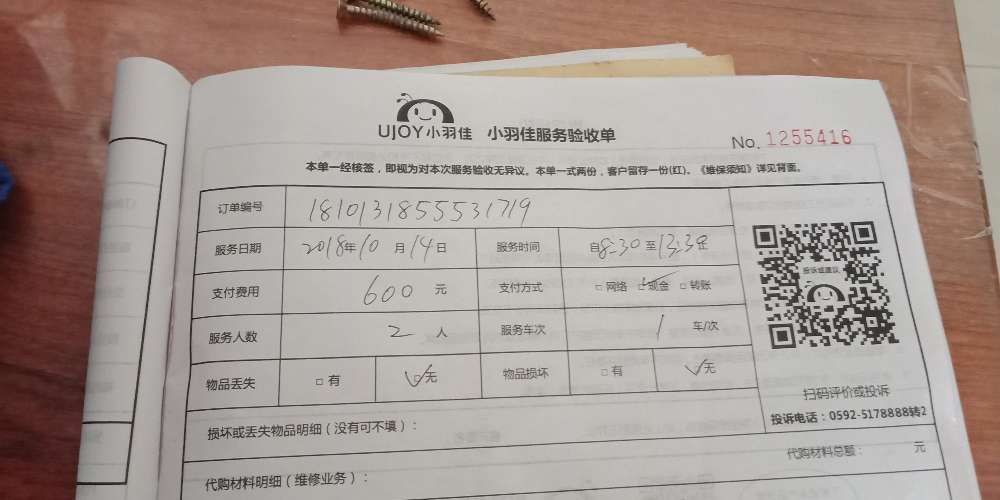 UJOY小羽佳 小羽佳服务验收单
No. 1255416
本单一经核签，即视为对本次服务验收无异议。本单一式两份，客户留存一份(红)。《维保须知》详见背面。
订单编号 1810131855531719
服务日期 2018年10月14日 服务时间 自8:30至13:30止
支付费用 600元 支付方式 □网络 □现金 □转账
服务人数 2人 服务车次 1 车/次
物品丢失 □有 □无 物品损坏 □有 □无
投诉或建议
扫码评价或投诉
投诉电话：0592-5178888转2
损坏或丢失物品明细（没有可不填）：
代购材料明细（维修业务）： 代购材料总额： 元